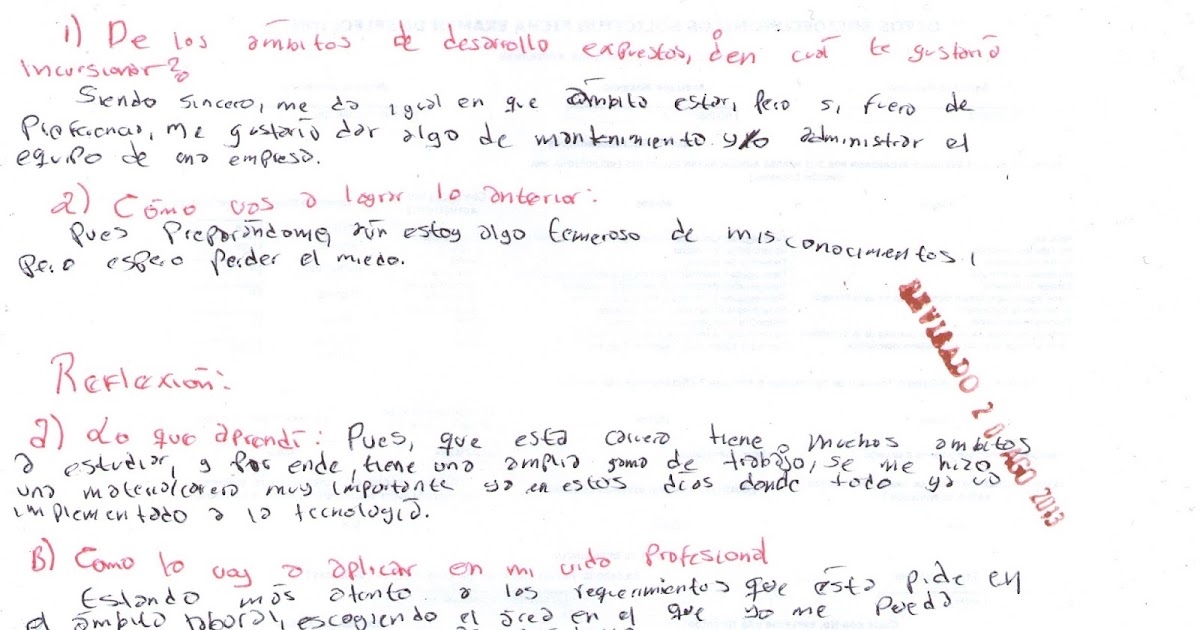 1) De los ámbitos de desarrollo expuestos, ¿en cuál te gustaría
incursionar?
Siendo sincero, me da igual en que ámbito estar, pero si fuero de
me gustaría dar algo de mantenimiento y/o administrar el
equipo de una empresa.
2) Cómo vas a lograr lo anterior:
Pues preparándome, aún estoy algo temeroso de mis conocimientos,
pero espero perder el miedo.
REVISADO 20 AGO 2013
Reflexión:
a) Lo que aprendí: Pues, que esta carrera tiene muchos ambitos
a estudiar, y por ende, tiene una amplia gama de trabajo, se me hizo
una materia/carrera muy importante ya en estos días donde todo ya va
implementado a la tecnología.
B) Como lo voy a aplicar en mi vida profesional
Estando más atento a los requerimientos que ésta pide en
el ámbito laboral, escogiendo el área en el que yo me pueda